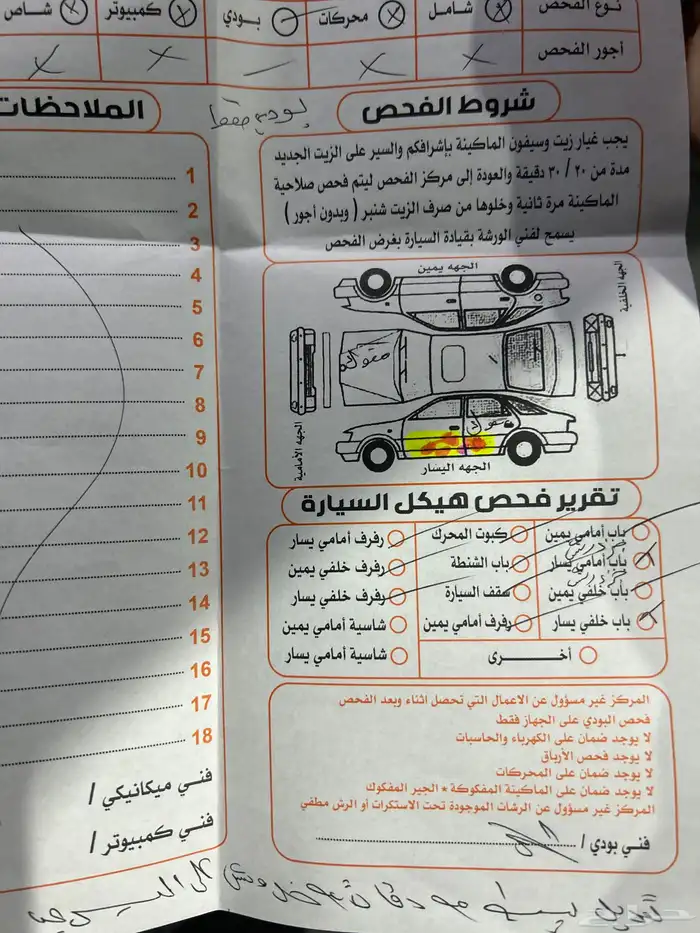 نوع الفحص
شامل
محركات
بودي
كمبيوتر
شاص
أجور الفحص
شروط الفحص
بودي فقط
الملاحظات
يجب غيار زيت وسيفون الماكينة بإشرافكم والسير على الزيت الجديد
مدة من ٢٠ / ٣٠ دقيقة والعودة إلى مركز الفحص ليتم فحص صلاحية
الماكينة مرة ثانية وخلوها من صرف الزيت شنبر ( وبدون أجور )
يسمح لفني الورشة بقيادة السيارة بغرض الفحص
1
2
3
4
5
6
7
8
9
10
11
12
13
14
15
16
17
18
الجهه يمين
الجهه الخلفية
الجهه الأمامية
الجهه اليسار
تقرير فحص هيكل السيارة
باب أمامي يمين
كبوت المحرك
رفرف أمامي يسار
باب أمامي يسار
باب الشنطة
رفرف خلفي يمين
باب خلفي يمين
سقف السيارة
رفرف خلفي يسار
باب خلفي يسار
رفرف أمامي يمين
شاسية أمامي يمين
أخــــرى
شاسية أمامي يسار
المركز غير مسؤول عن الاعمال التي تحصل اثناء وبعد الفحص
فحص البودي على الجهاز فقط
لا يوجد ضمان على الكهرباء والحاسبات
لا يوجد فحص الأرباق
لا يوجد ضمان على المحركات
لا يوجد ضمان على الماكينة المفكوكة * الجير المفكوك
المركز غير مسؤول عن الرشات الموجودة تحت الاستكرات أو الرش مطفي
فني بودي /
فني ميكانيكي /
فني كمبيوتر /